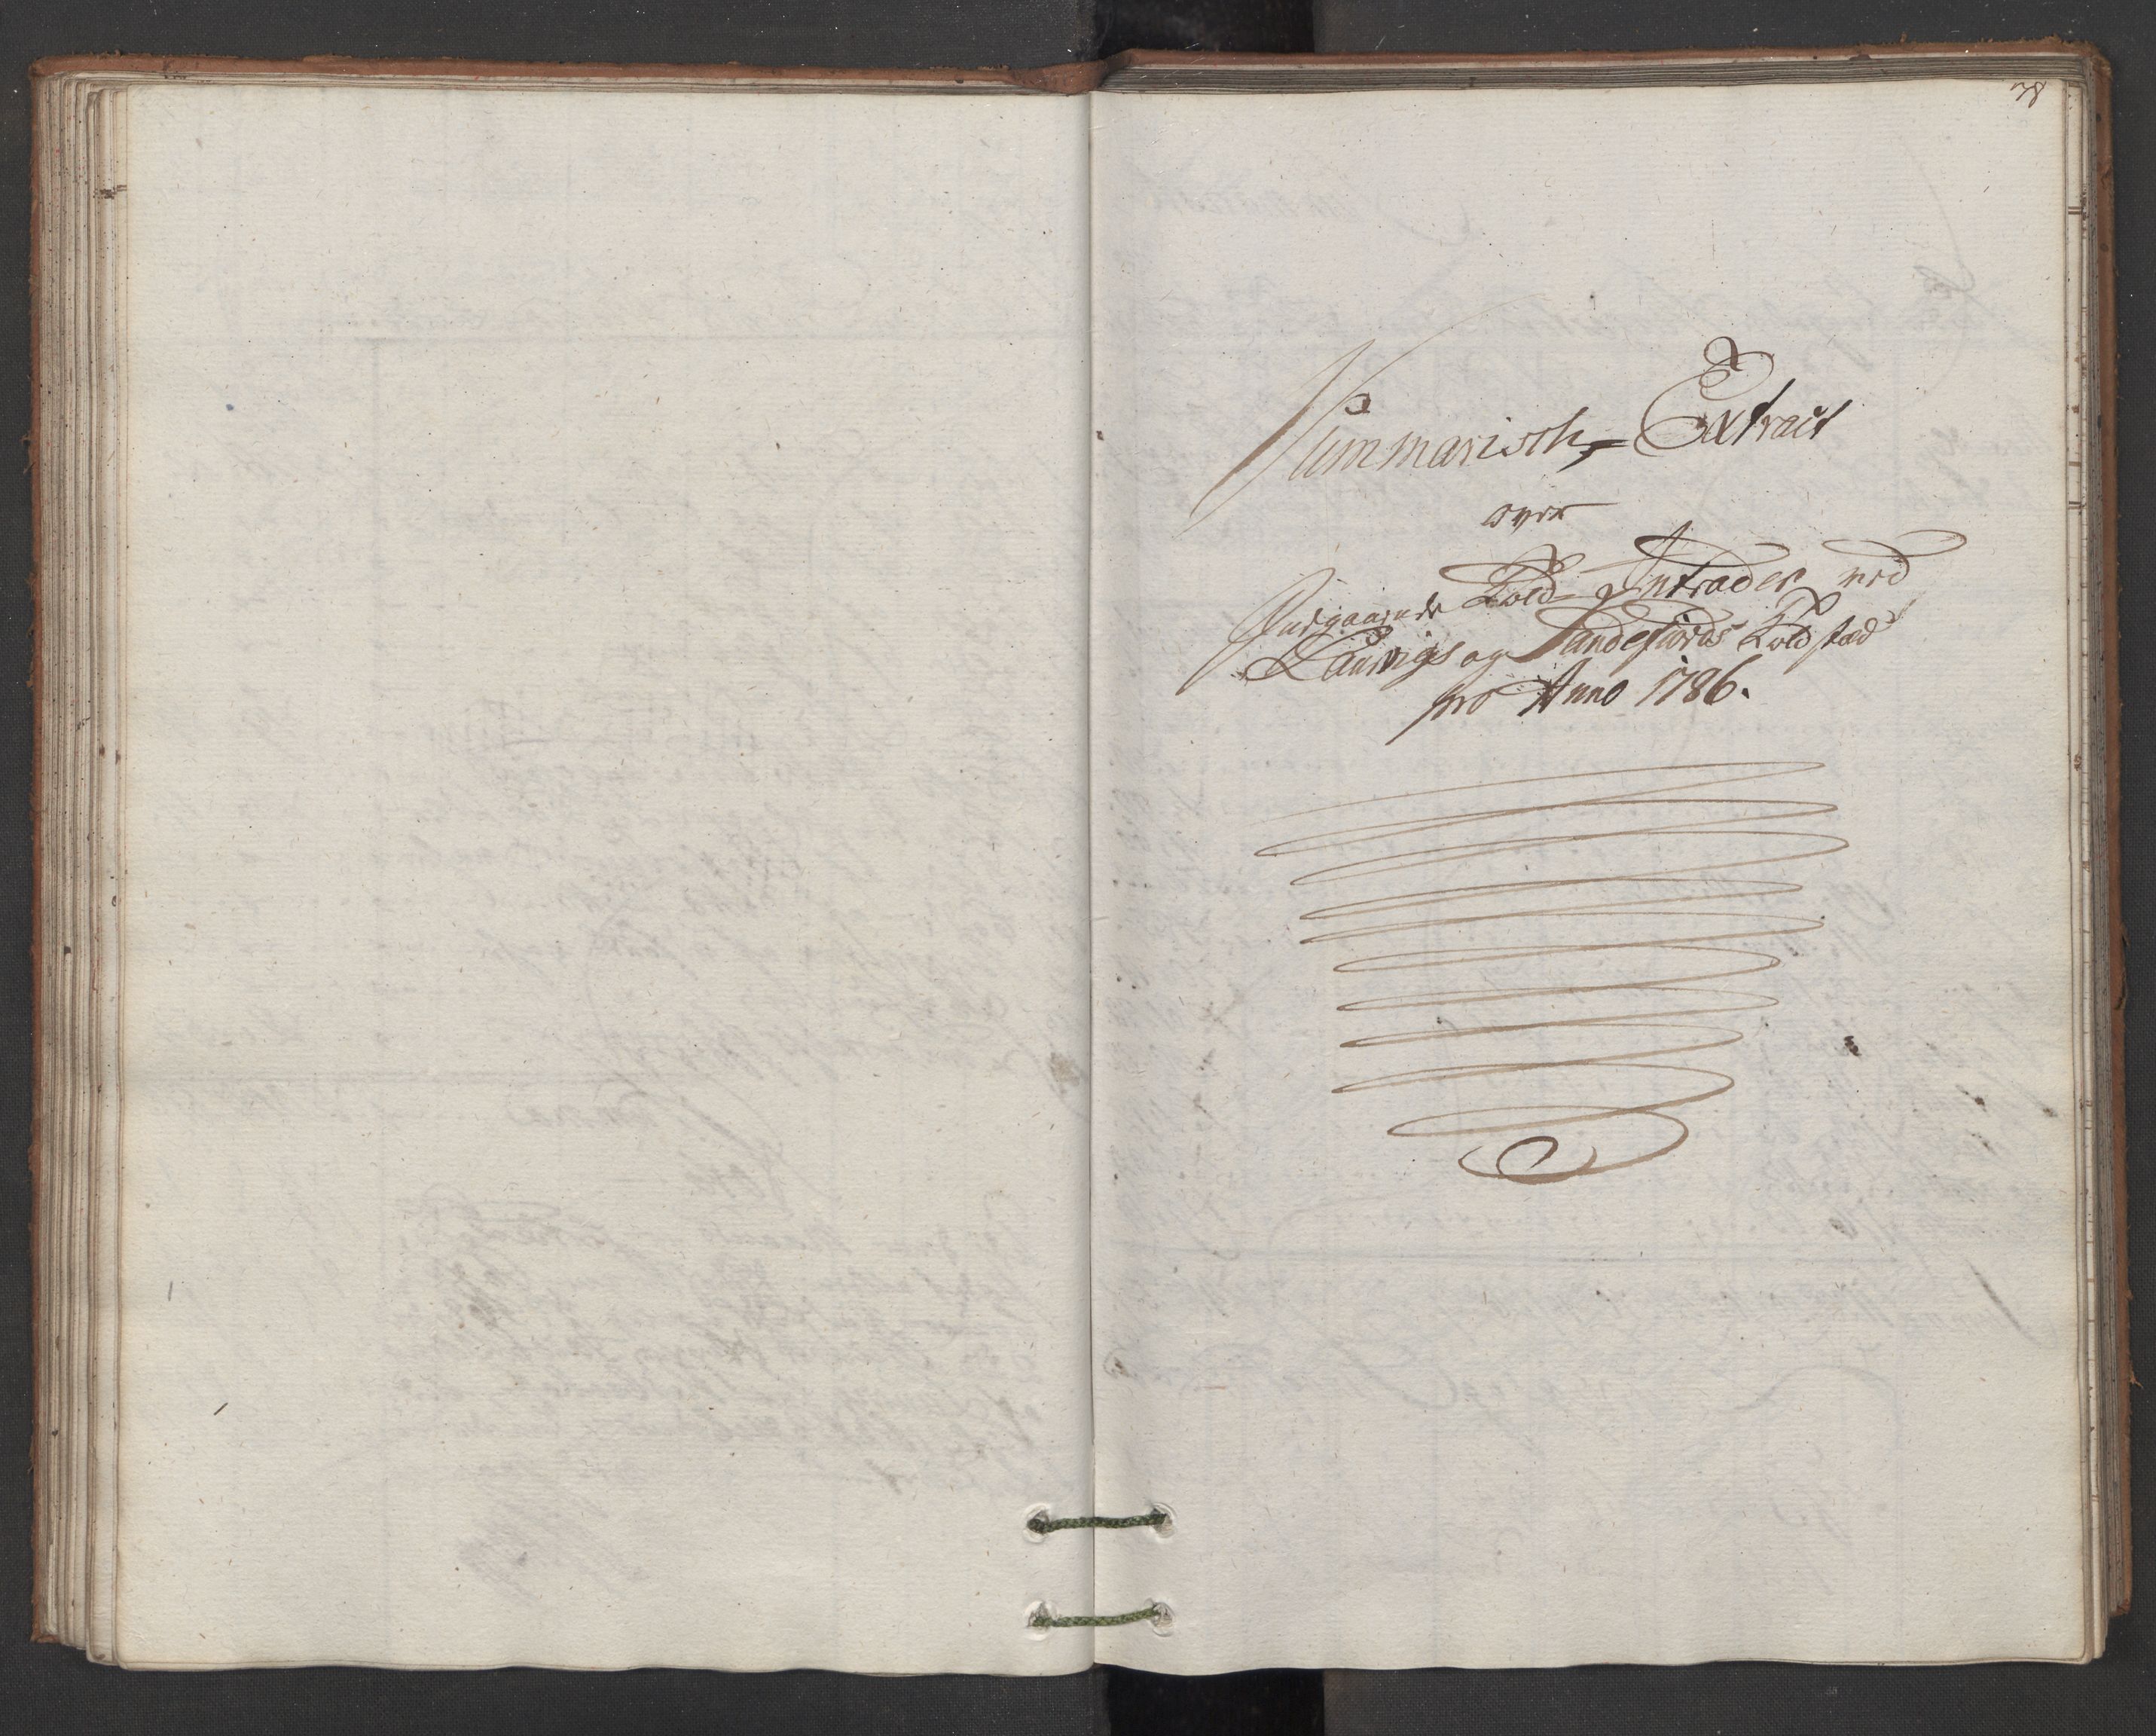 78
Summarisch Extract
over
Indgaaende Told-Intrader ved
Laurvigs og Sandefiords Toldstæd
pro Anno 1786.